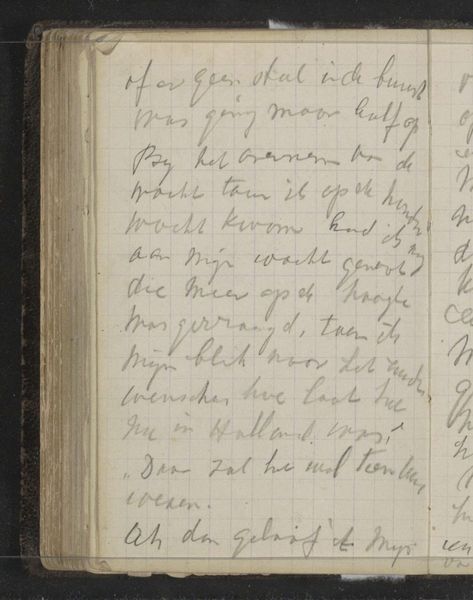 of er geen stal in de buurt
was ging maar half op
By het overnemen van de
wacht toen ik op de honden
wacht kwam had ik my
aan mijn wacht genoot
die meer op de hoogte
was gevraagd, toen ik
mijn blik naar het
hoe laat het
nu in Holland was!
„Daar zal het wel tien uur
wezen.
Oh dan geloof ik mijn